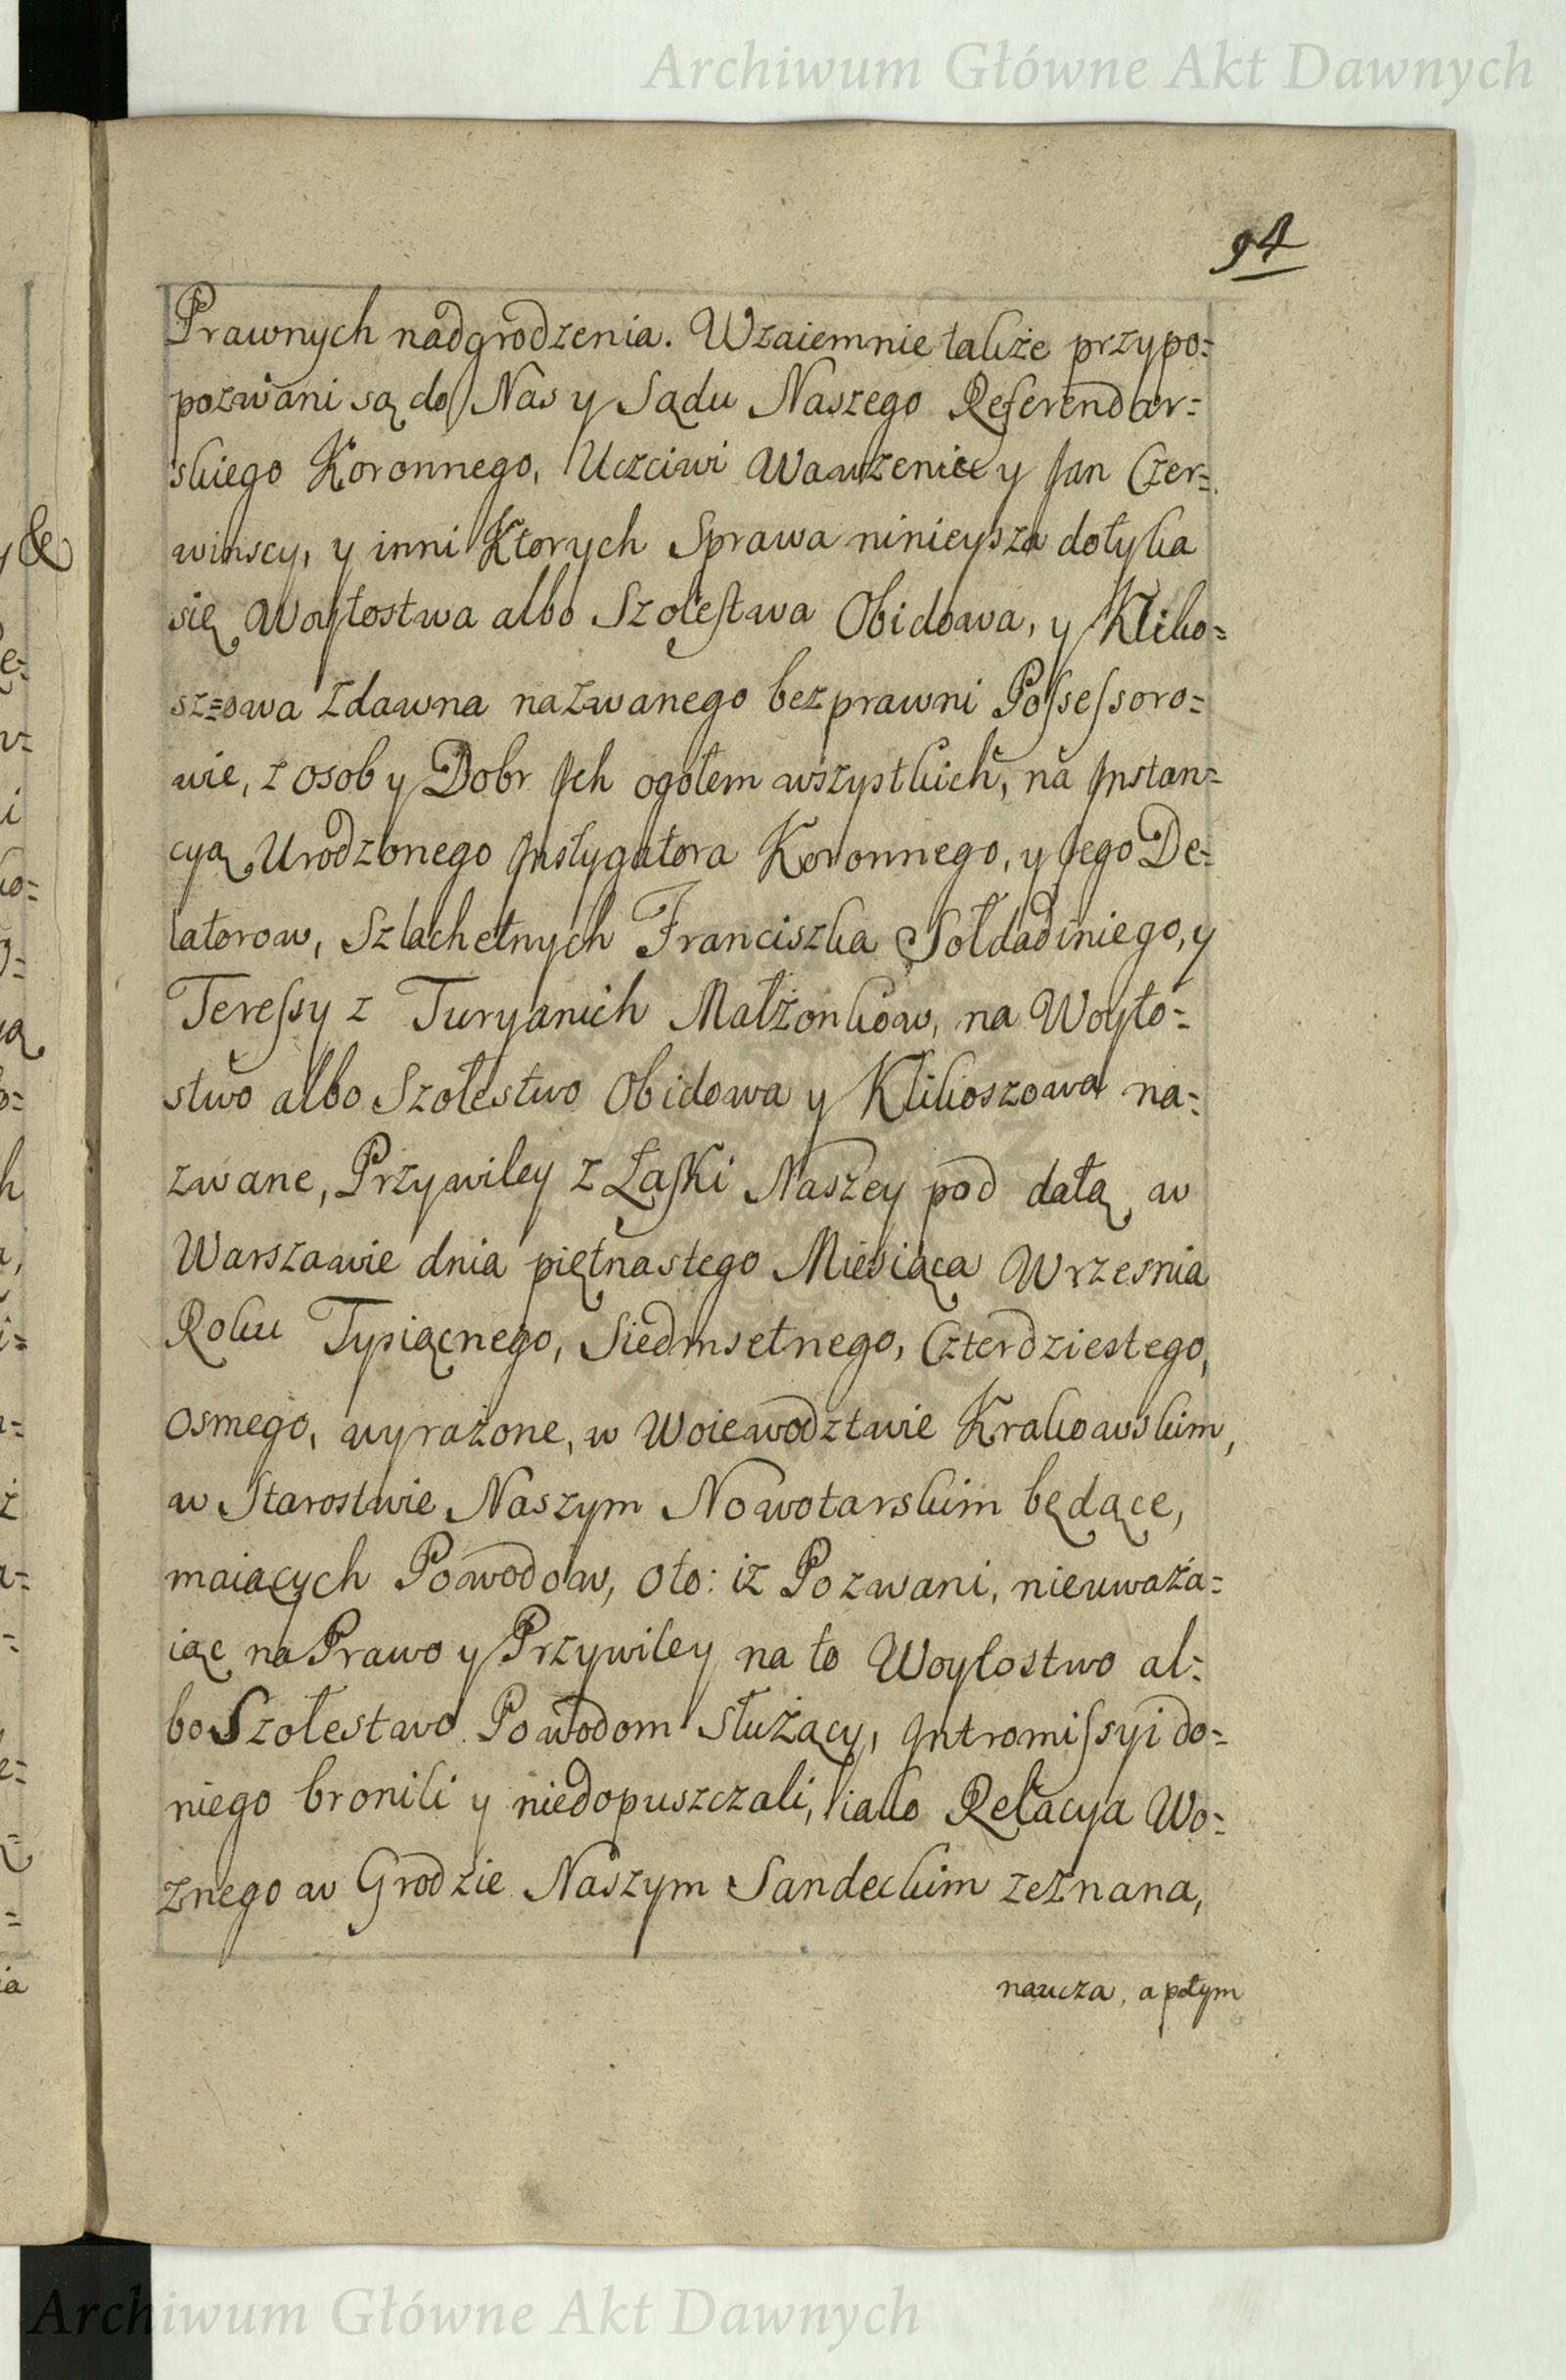 Archiwum Główne Akt Dawnych
94
Prawnych nadgrodzenia. Wzaiemnie także przypo=
pozwani są do Nas y Sądu Naszego Referendar=
skiego Koronnego, Uczciwi Wawrzeniec y Jan Czer=
winscy, y inni Ktorych Sprawa ninieysza dotyka
się Woytostwa albo Szołestwa Obidowa, y Kliko=
szowa zdawna nazwanego bezprawni Possessoro=
wie, z osob y Dobr Ich ogołem wszystkich, na Instan=
cyą Urodzonego Instygatora Koronnego, y Jego De=
latorow, Szlachetnych Franciszka Sołdadiniego, y
Teressy z Turyanich Małżonkow, na Woyto=
stwo albo Szołestwo Obidowa y Klikoszowa na=
zwane, Przywiley z Łaski Naszey pod datą w
Warszawie dnia piętnastego Miesiąca Wrzesnia
Roku Tysiącnego, Siedmsetnego, Czterdziestego,
Osmego, wyrażone, w Woiewodztwie Krakowskim,
w Starostwie Naszym Nowotarskim będące,
maiących Powodow, oto: iż Pozwani, nieuważa=
iąc na Prawo y Przywiley na to Woytostwo al=
bo Szołestwo Powodom służący, Intromissyi do=
niego bronili y niedopuszczali, iako Relacya Wo=
znego w Grodzie Naszym Sandeckim zeznana,
naucza, a potym
Archiwum Główne Akt Dawnych